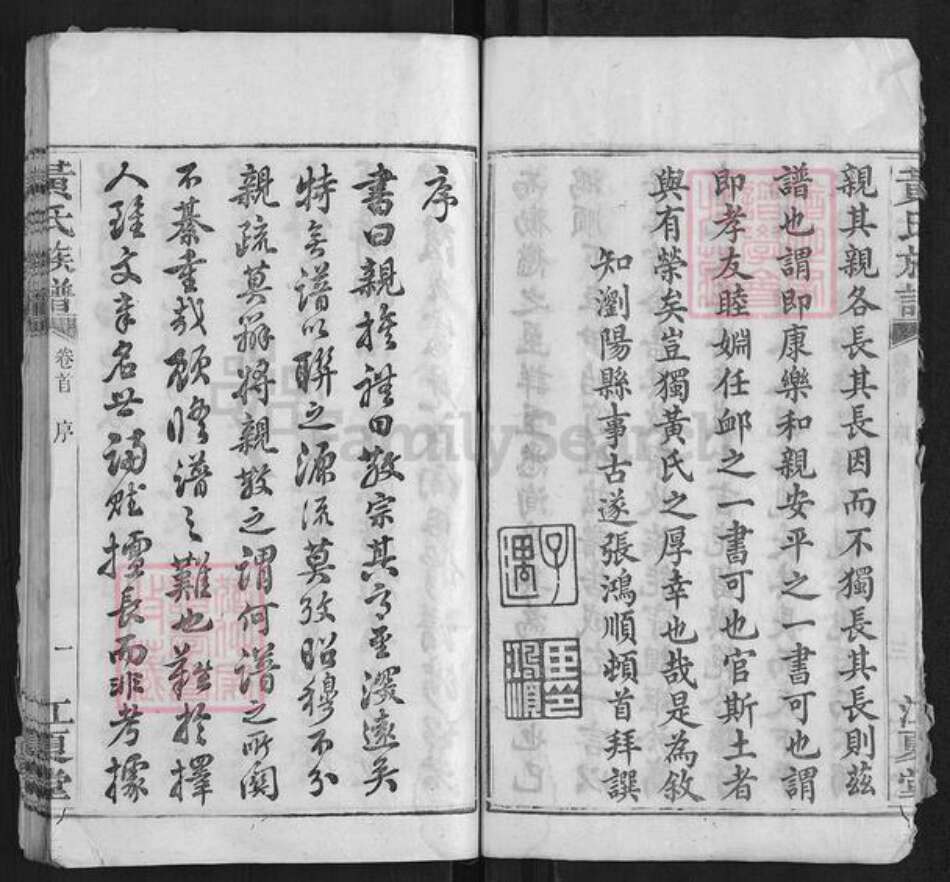 親其親各長其長因而不獨長其長則茲
譜也謂即康樂和親安平之一書可也謂
即孝友睦婣任卹之一書可也官斯土者
與有榮矣豈獨黃氏之厚幸也哉是為敘
知瀏陽縣事古遂張鴻順頓首拜譔
序
書曰親族禮曰敬宗其意深遠矣
特無譜以聯之源流莫攷昭穆不分
親疏莫辨將親敬之謂何譜之所関
不綦重哉顧脩譜之難也難於擇
人雖文章名世誦賦擅長而非考據
黃氏族譜
卷首
序
一
江夏堂
FamilySearch